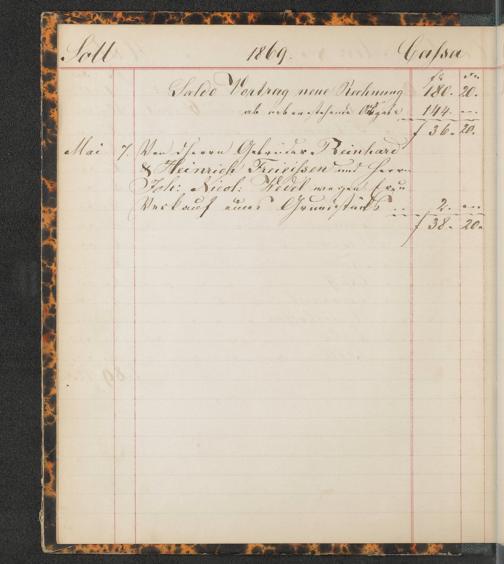 Soll 1869. Cassa
Saldo Vortrag neue Rechnung 180. 20.
ab nebenstehende 144. —
f 36. 20.
Mai 7. Von Herrn Gebrüder Reinhard
& Heinrich und Herrn
Joh: Nicol: wegen
Verkauf eines Grundstücks 2. —
f 38. 20.